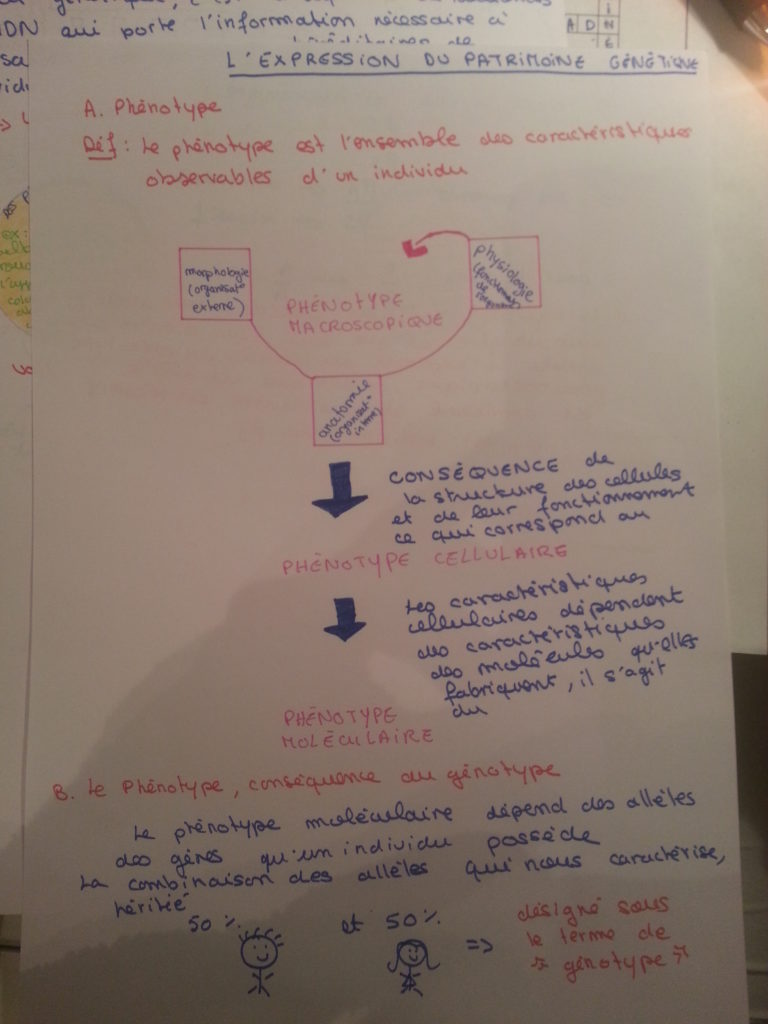 DN qui porte l'information nécessaire à
A D N
L'EXPRESSION DU PATRIMOINE GÉNÉTIQUE
A. Phénotype
Déf : Le phénotype est l'ensemble des caractéristiques
observables d'un individu
morphologie
(organisat°
externe)
PHÉNOTYPE
MACROSCOPIQUE
physiologie
anatomie
(organisat°
interne)
CONSÉQUENCE de
la structure des cellules
et de leur fonctionnement
ce qui correspond au
PHÉNOTYPE CELLULAIRE
Les caractéristiques
cellulaires dépendent
des caractéristiques
des molécules qu'elles
fabriquent, il s'agit
du
PHÉNOTYPE
MOLÉCULAIRE
B. Le Phénotype, conséquence du génotype
Le phénotype moléculaire dépend des allèles
des gènes qu'un individu possède
La combinaison des allèles qui nous caractérise,
héritié
50 % et 50 % =>
désigné sous
le terme de
" génotype "